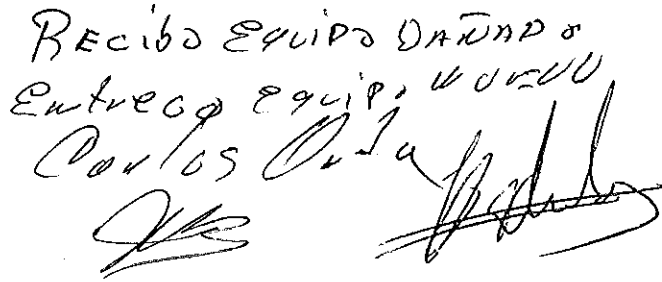 RECIBO EQUIPO DAÑADO
Entrego equipo NUEVO
Carlos